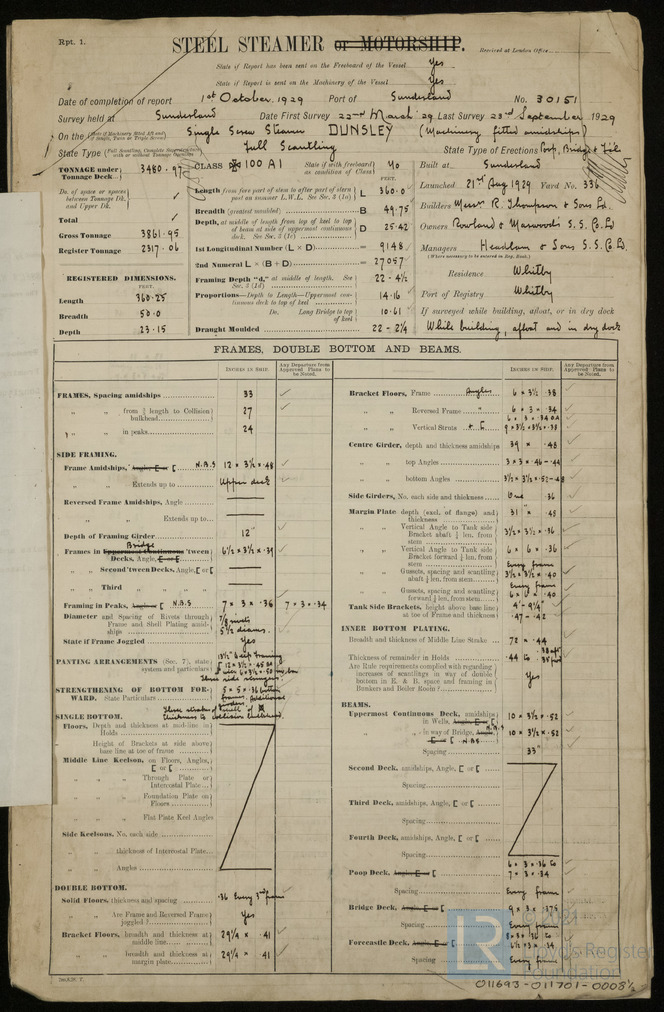 Rpt. 1.
STEEL STEAMER or MOTORSHIP.
Received at London Office
State if Report has been sent on the Freeboard of the Vessel Yes
State if Report is sent on the Machinery of the Vessel Yes
Date of completion of report 1st October 1929 Port of Sunderland No. 30151
Survey held at Sunderland Date First Survey 22nd March 29 Last Survey 23rd September 1929
On the Single Screw Steamer DUNSLEY (Machinery fitted amidships)
State Type Full Scantling State Type of Erections Poop, Bridge & F'cle
TONNAGE under Tonnage Deck 3480.97
Do. of space or spaces between Tonnage Dk. and Upper Dk.
Total
Gross Tonnage 3861.95
Register Tonnage 2317.06
REGISTERED DIMENSIONS.
FEET.
Length 360.25
Breadth 50.0
Depth 23.15
CLASS 100 A1 State if with freeboard as condition of Class No
FEET.
Length from fore part of stem to after part of stern post on summer L.W.L. See Sec. 3 (1a) L 360.0
Breadth (greatest moulded) B 49.75
Depth, at middle of length from top of keel to top of beam at side of uppermost continuous deck. See Sec. 3 (1c) D 25.42
1st Longitudinal Number (L × D) = 9148
2nd Numeral L × (B + D) = 27057
Framing Depth "d," at middle of length. See Sec. 3 (1d) 22-4½
Proportions—Depth to Length—Uppermost continuous deck to top of keel 14.16
Do. Long Bridge to top of keel 10.61
Draught Moulded 22-2¼
Built at Sunderland
Launched 21st Aug 1929 Yard No. 336
Builders Messrs R. Thompson & Sons Ld.
Owners Rowland & Marwoods S.S. Co Ld
Managers Headlam & Sons S.S. Co Ld.
(Where necessary to be entered in Reg. Book.)
Residence Whitby
Port of Registry Whitby
If surveyed while building, afloat, or in dry dock
While building, afloat and in dry dock
FRAMES, DOUBLE BOTTOM AND BEAMS.
INCHES IN SHIP.
Any Departure from Approved Plans to be Noted.
FRAMES, Spacing amidships 33
" " from ⅗ length to Collision bulkhead 27
" " in peaks 24
SIDE FRAMING.
Frame Amidships, Angle, E or [ N.B.S 12 × 3½ × .48
" " Extends up to Upper deck
Reversed Frame Amidships, Angle
" " Extends up to
Depth of Framing Girder 12"
Frames in Uppermost Continuous Bridge 'tween Decks, Angle, E or E 6½ × 3½ × .39
" " Second 'tween Decks, Angle, [ or [
" " Third " "
Framing in Peaks, Angle or [ N.B.S 7 × 3 × .36 7 × 3 × .34
Diameter and Spacing of Rivets through Frame and Shell Plating amidships 7/8 rivets 5½ diams.
State if Frame Joggled Yes
PANTING ARRANGEMENTS (Sec. 7), state system and particulars
STRENGTHENING OF BOTTOM FORWARD. State Particulars
SINGLE BOTTOM.
Floors, Depth and thickness at mid-line in Holds
Height of Brackets at side above base line at toe of frame
Middle Line Keelson, on Floors, Angles, [ or [
" " Through Plate or Intercostal Plate
" " Foundation Plate on Floors
" " Flat Plate Keel Angles
Side Keelsons, No. each side
" thickness of Intercostal Plate
" Angles
DOUBLE BOTTOM.
Solid Floors, thickness and spacing .36 Every 3rd frame
" " Are Frame and Reversed Frame joggled? Yes
Bracket Floors, breadth and thickness at middle line 29¼ × .41
" " breadth and thickness at margin plate 29¼ × .41
INCHES IN SHIP.
Any Departure from Approved Plans to be Noted.
Bracket Floors, Frame Angles 6 × 3½ .38
" " Reversed Frame " 6 × 3 × .34
" " Vertical Struts 9 × 3½ × 3½ × .38
Centre Girder, depth and thickness amidships 39 × .48
" " top Angles 3 × 3 × .46-.44
" " bottom Angles 3½ × 3½ × .52-.48
Side Girders, No. each side and thickness One .36
Margin Plate depth (excl. of flange) and thickness 31" × .45
" " Vertical Angle to Tank side Bracket abaft ¼ len. from stem 3½ × 3½ × .36
" " Vertical Angle to Tank side Bracket forward ¼ len. from stem 6 × 6 × .36
" " Gussets, spacing and scantling abaft ¼ len. from stem Every frame 3½ × 3½ × .40
" " Gussets, spacing and scantling forward ¼ len. from stem Every frame 6 × 6 × .40
Tank Side Brackets, height above base line at toe of Frame and thickness 4'-9¼" .47-.42
INNER BOTTOM PLATING.
Breadth and thickness of Middle Line Strake 72 × .44
Thickness of remainder in Holds .44 to .38 aft .35 ford
Are Rule requirements complied with regarding increases of scantlings in way of double bottom in E. & B. space and framing in Bunkers and Boiler Room? Yes
BEAMS.
Uppermost Continuous Deck, amidships in Wells, Angle, E or [ 10 × 3½ × .52
" " in way of Bridge, Angle, E or [ N.B.S 10 × 3½ × .52
Spacing 33"
Second Deck, amidships, Angle, [ or [
Spacing
Third Deck, amidships, Angle, [ or [
Spacing
Fourth Deck, amidships, Angle, [ or [
Spacing
Poop Deck, Angle, E or [ 6 × 3 × .36 to 7 × 3 × .34
Spacing Every frame
Bridge Deck, Angle, E or [ 9 × 3 × .375
Spacing Every frame
Forecastle Deck, Angle, E or [ 8 × 3 × .36 to 6½ × 3 × .34
Spacing Every frame
LR
© 2021
Lloyd's Register
Foundation
011693-011701-0008½